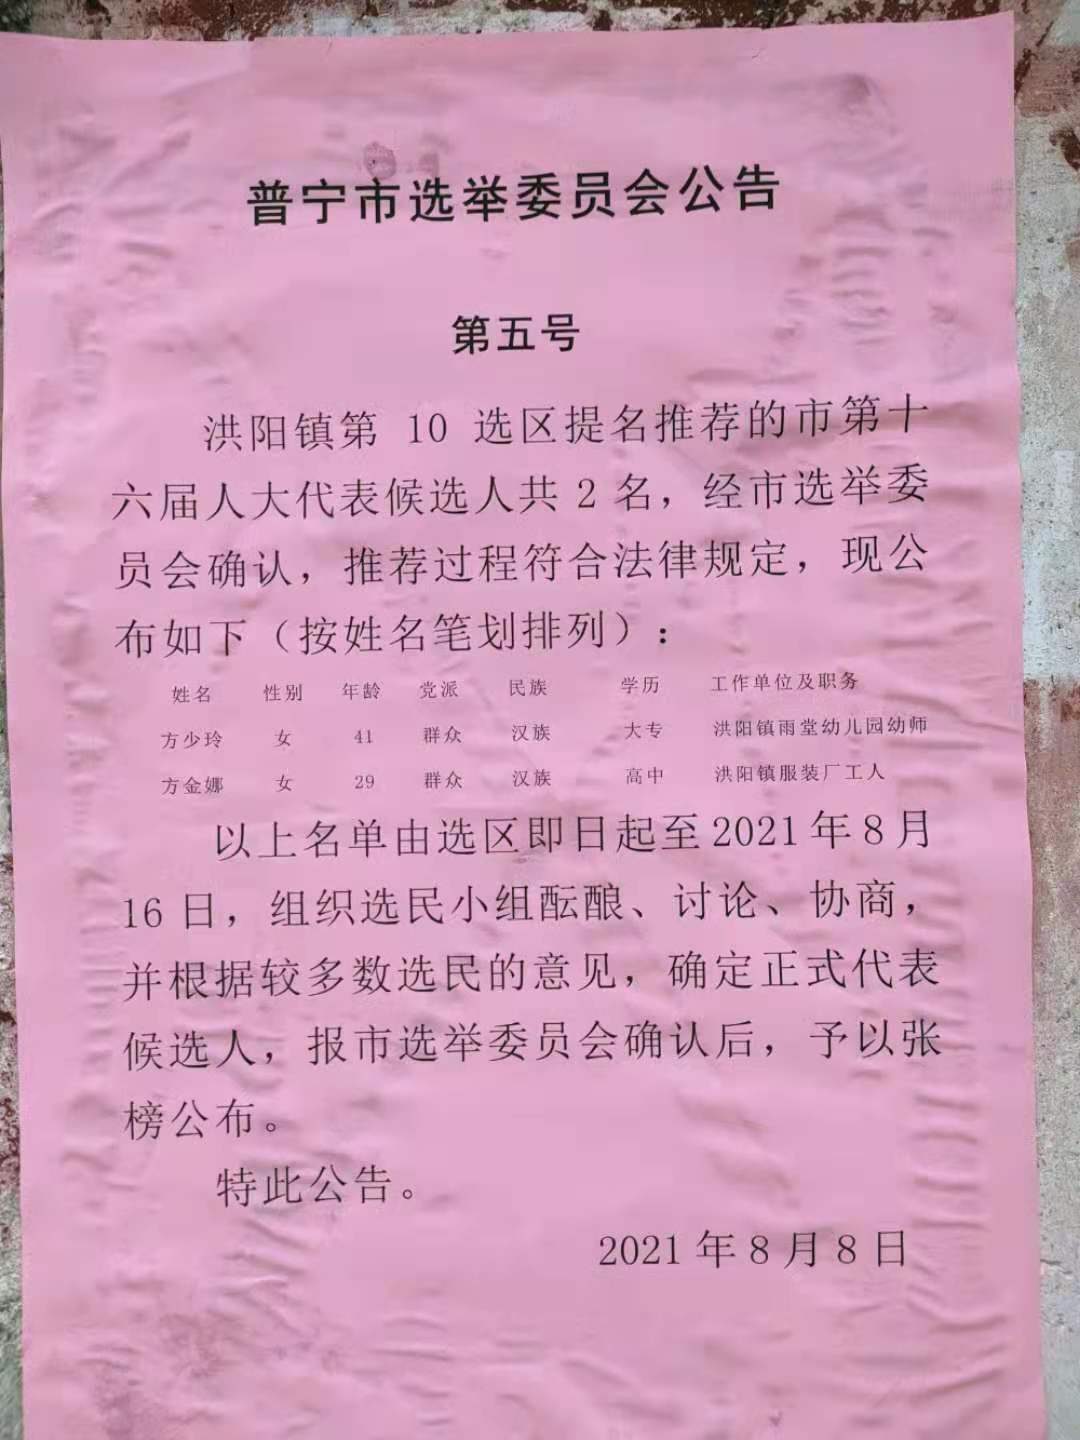 普宁市选举委员会公告
第五号
洪阳镇第 10 选区提名推荐的市第十
六届人大代表候选人共 2 名，经市选举委
员会确认，推荐过程符合法律规定，现公
布如下（按姓名笔划排列）：
姓名 性别 年龄 党派 民族 学历 工作单位及职务
方少玲 女 41 群众 汉族 大专 洪阳镇雨堂幼儿园幼师
方金娜 女 29 群众 汉族 高中 洪阳镇服装厂工人
以上名单由选区即日起至2021年8月
16日，组织选民小组酝酿、讨论、协商，
并根据较多数选民的意见，确定正式代表
候选人，报市选举委员会确认后，予以张
榜公布。
特此公告。
2021年8月8日